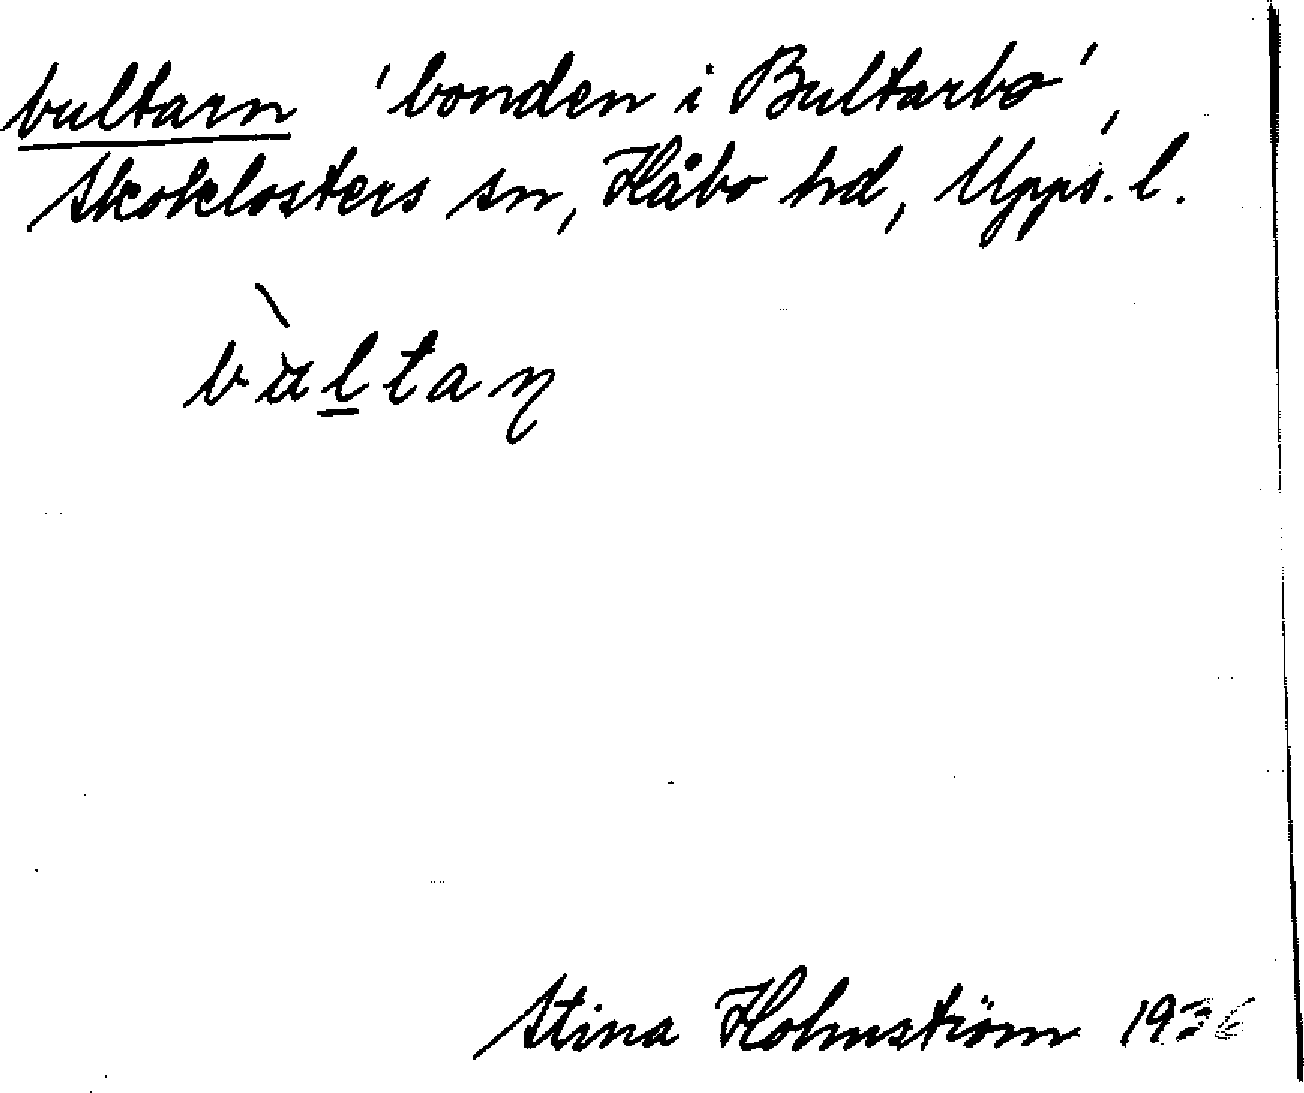 bultarn 'bonden i Bultarbo',
Skoklosters sn, Håbo hd, Upps. l.
bùltaɳ
Stina Holmström 1936